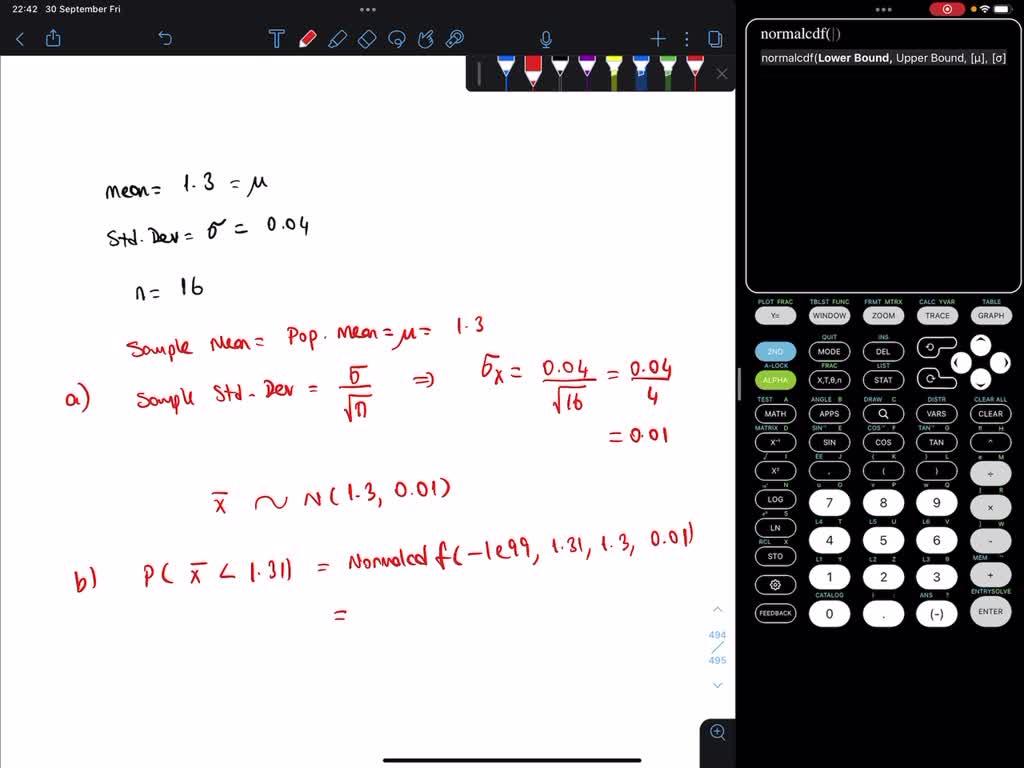 22:42 30 September Fri
normalcdf(|)
normalcdf(Lower Bound, Upper Bound, [μ], [σ]
mean= 1.3 = μ
Std. Dev = σ = 0.04
n= 16
Sample Mean = Pop. Mean = μ = 1.3
a) Sample Std. Dev = σ/√n ⇒ σx = 0.04/√16 = 0.04/4
= 0.01
x̄ ~ N(1.3, 0.01)
b) P( x̄ < 1.31) = Normalcdf(-1e99, 1.31, 1.3, 0.01)
=
494
495
PLOT FRAC TBLST FUNC FRMT MTRX CALC YVAR TABLE
Y= WINDOW ZOOM TRACE GRAPH
QUIT INS
2ND MODE DEL
A-LOCK FRAC LIST
ALPHA X,T,θ,n STAT
TEST A ANGLE B DRAW C DISTR CLEAR ALL
MATH APPS VARS CLEAR
MATRIX D SIN⁻¹ E COS⁻¹ F TAN⁻¹ G π H
X⁻¹ SIN COS TAN ^
√ I EE J { K } L e M
X² , ( ) ÷
N u O v P w Q [ R
LOG 7 8 9 ×
S L4 T L5 U L6 V ] W
LN 4 5 6 -
RCL X L1 Y L2 Z L3 θ MEM "
STO 1 2 3 +
CATALOG i : ANS ? ENTRYSOLVE
FEEDBACK 0 . (-) ENTER